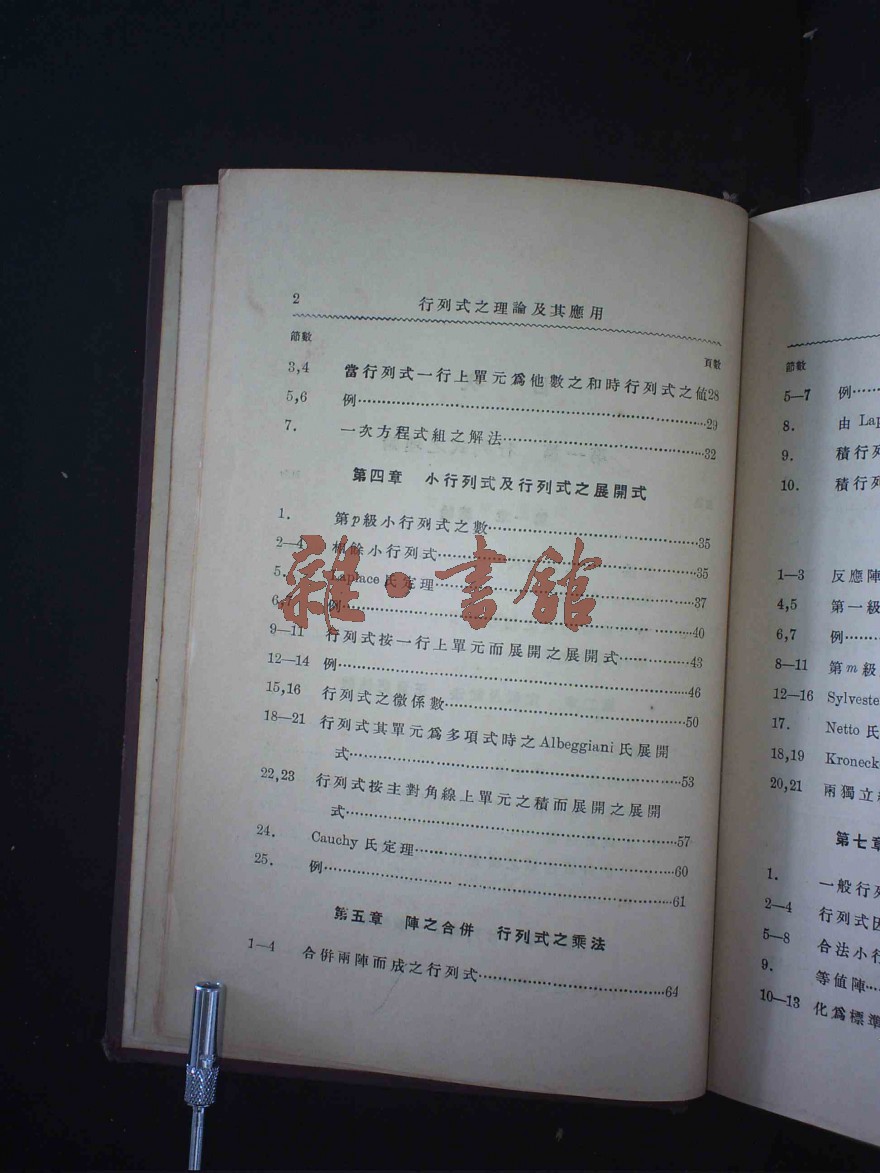 2 行列式之理論及其應用
節數 頁數
3,4 當行列式一行上單元爲他數之和時行列式之値28
5,6 例……29
7. 一次方程式組之解法……32
第四章 小行列式及行列式之展開式
1. 第p級小行列式之數……35
2—4 相餘小行列式……35
5. Laplace氏定理……37
6,7 例……40
9—11 行列式按一行上單元而展開之展開式……43
12—14 例……46
15,16 行列式之微係數……50
18—21 行列式其單元爲多項式時之Albeggiani氏展開
式……53
22,23 行列式按主對角線上單元之積而展開之展開
式……57
24. Cauchy氏定理……60
25. 例……61
第五章 陣之合併 行列式之乘法
1—4 合併兩陣而成之行列式……64
雜·書館
節數
5—7 例……
8. 由Lap
9. 積行列
10. 積行列
1—3 反應陣
4,5 第一級
6,7 例……
8—11 第m級
12—16 Sylveste
17. Netto氏
18,19 Kroneck
20,21 兩獨立
第七章
1. 一般行列
2—4 行列式因
5—8 合法小行
9. 等値陣…
10—13 化爲標準